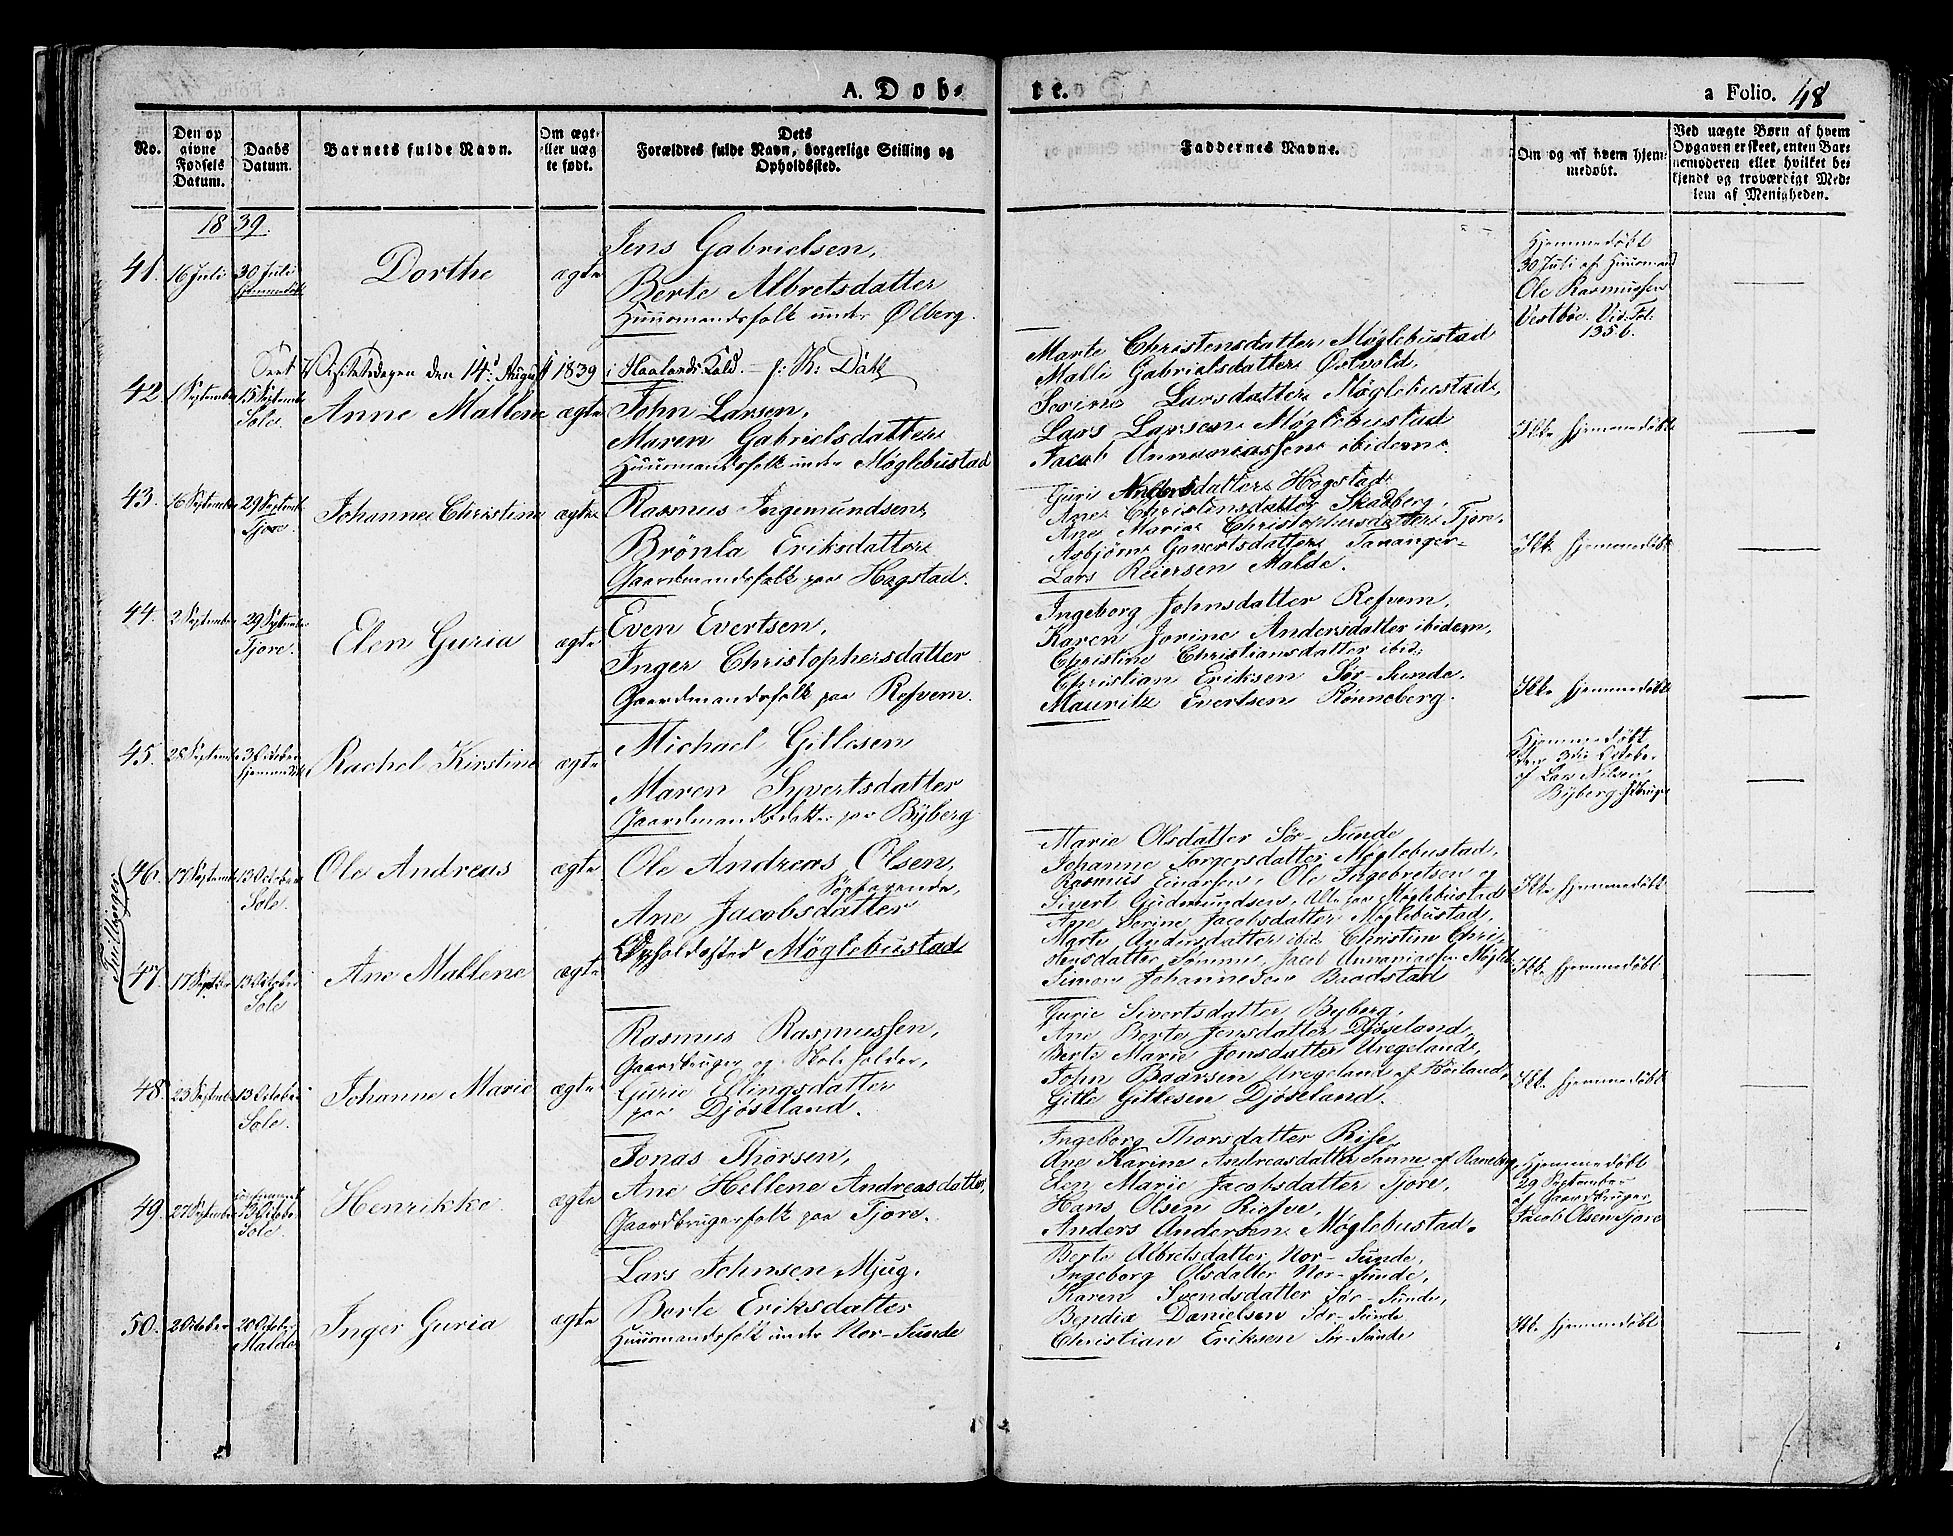 A. Døb-
te.
a Folio. 48
No.
Den op
givne
Fødsels
Datum.
Daabs
Datum.
Barnets fulde Navn.
Om ægt-
eller uæg
te født.
Dets
Forældres fulde Navn, borgerlige Stilling og
Opholdssted.
Faddernes Navne.
Om og af hvem hjem-
medøbt.
Ved uægte Børn af hvem
Opgaven er skeet, enten Bar-
nemoderen eller hvilket be-
kjendt og troværdigt Med-
lem af Menigheden.
1839.
41.
16 Juli
30 Juli
hjemmedøbt
Dorthe
ægte
Jens Gabrielsen,
Berte Albretsdatter
Huusmandsfolk under Ølberg.
Hjemmedøbt
30 Juli af Huusmand
Ole Rasmussen
Vestbøe. Vid. Fol.
135 b.
Seet Visitatsdagen den 14d August 1839 i Haalands Kald. - J: K: Dahl
42
1 September
15 September
Sole.
Anne Mallene
ægte
John Larsen,
Maren Gabrielsdatter
Huusmandsfolk under Møglebustad
Marte Christensdatter Møglebustad
Malli Gabrielsdatter Østvold,
Serine Larsdatter Møglebustad,
Lars Larsen Møglebustad
Jacob Annaniassen ibidem.
Ikke hjemmedøbt
43.
16 September
29 September
Tjore.
Johanne Christine
ægte
Rasmus Ingemundsen,
Brönla Eriksdatter
Gaardmandsfolk paa Hogstad.
Guri Andersdatter Hogstad
Ane Christensdatter Skadberg,
Ane Maria Christophersdatter Tjore,
Asbjørn Govertsdatter Tananger
Lars Reiersen Malde.
Ikke hjemmedøbt
44.
2 September
29 September
Tjore.
Elen Guria
ægte
Even Evertsen,
Inger Christophersdatter
Gaardmandsfolk paa Refvem.
Ingeborg Johnsdatter Refvem,
Karen Jorine Andersdatter ibidem,
Christine Christiansdatter ibid,
Christian Eriksen Sør-Sunde,
Mauritz Evertsen Rönneberg.
Ikke hjemmedøbt
45.
28 September
3 October
hjemmedøbt
Rachel Kirstine
ægte
Michael Gitlesen
Maren Syvertsdatter
Gaardmandsfolk paa Byberg
Hjemmedøbt
den 3die October
af Lars Nilsen
Byberg
Tvillinger
46.
17 September
13 October
Sole.
Ole Andreas
ægte
Ole Andreas Olsen,
Söefarende,
Ane Jacobsdatter
Opholdssted Møglebustad
Marie Olsdatter Sør-Sunde
Johanne Torgersdatter Møglebustad,
Rasmus Einarsen, Ole Ingebretsen og
Sivert Gudmundsen, Alle paa Møglebustad
Ikke hjemmedøbt
47.
17 Septbr
13 October
Sole
Ane Mallene
ægte
Ane Serine Jacobsdatter Møglebustad,
Marte Andersdatter ibid Christine Chri-
stensdatter Sømme, Jacob Annaniassen Mögleb.
Simon Johannesen Baadstad
Ikke hjemmedøbt
48.
23 September
13 October
Sole.
Johanne Marie
ægte
Rasmus Rasmussen,
Gaardbruger og Skoleholder,
Gurie Elingsdatter
paa Djöseland.
Gurie Sivertsdatter Byberg,
Ane Berte Jensdatter Djöseland,
Berte Marie Jonsdatter Uregeland,
John Baarsen Uregeland af Hörland,
Gitle Gitlesen Djöseland.
Ikke hjemmedøbt
49.
27 September
13 October
Sole.
Henrikke
ægte
Jonas Thorsen,
Ane Hellene Andreasdatter,
Gaardbrugerfolk paa Tjore.
Ingeborg Thorsdatter Risé,
Ane Karine Andreasdatter Sønne af Raneberg,
Elen Marie Jacobsdatter Tjore,
Hans Olsen
Anders Andersen Møglebustad.
Hjemmedøbt
29 September
af Gaardbruger
Jacob Olsen Tjore
50.
2 October
20 October
Malde
Inger Guria
ægte
Lars Johnsen Mjug,
Berte Eriksdatter
Huusmandsfolk under Nor-Sunde
Berte Albretsdatter Nor-Sunde,
Ingeborg Olsdatter Nor-Sunde,
Karen Svendsdatter Sør-Sunde,
Bendix Danielsen Sør-Sunde
Christian Eriksen Sør-Sunde
Ikke hjemmedøbt